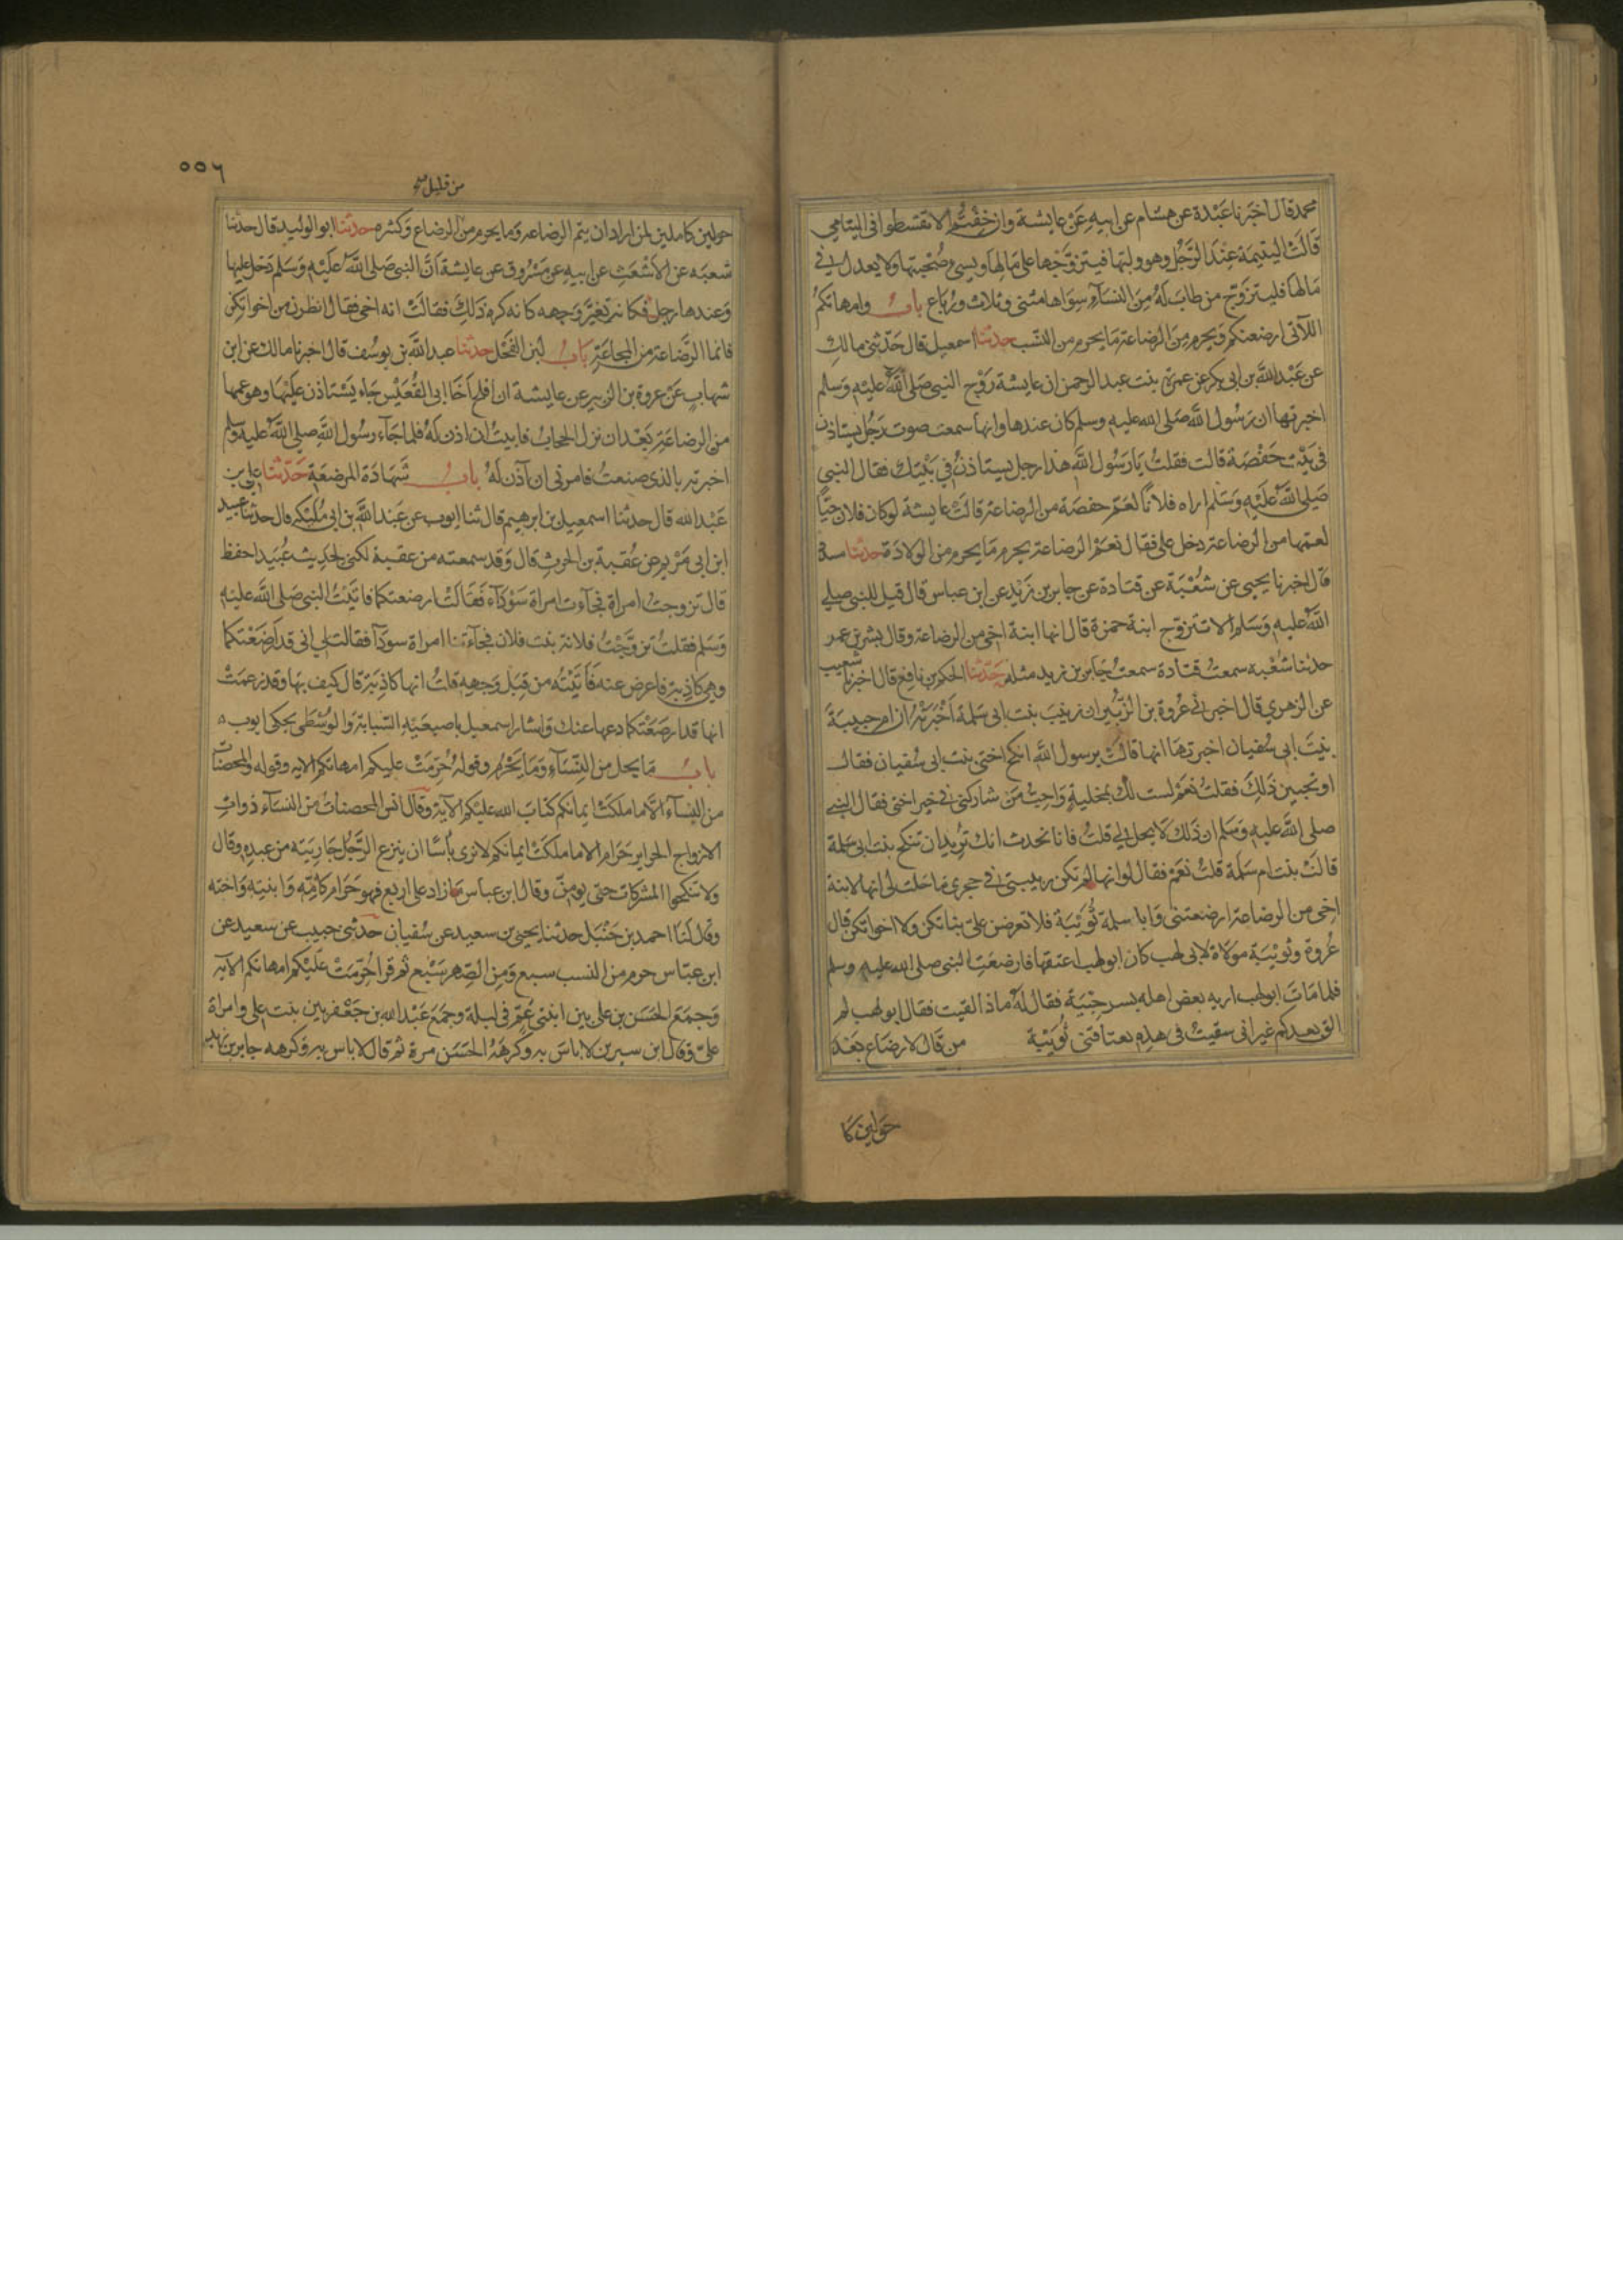 محمد قال اخبرنا عبدة عن هشام عن ابيه عن عايشة وان خفتم الا تقسطوا فى اليتامى
قالت اليتيمة عند الرجل وهو وليها فيتزوجها على مالها ويسىء صحبتها ولا يعدل فى
مالها فليتزوج من طاب له من النساء سواها مثنى وثلاث ورباع باب وامهاتكم
اللاتى ارضعنكم ويحرم من الرضاعة ما يحرم من النسب حدثنا اسمعيل قال حدثنى مالك
عن عبد الله بن ابى بكر عن عمرة بنت عبد الرحمن ان عايشة زوج النبى صلى الله عليه وسلم
اخبرتها ان رسول الله صلى الله عليه وسلم كان عندها وانها سمعت صوت رجل يستاذن
فى بيت حفصة قالت فقلت يا رسول الله هذا رجل يستاذن فى بيتك فقال النبى
صلى الله عليه وسلم اراه فلانا لعم حفصة من الرضاعة قالت عايشة لو كان فلان حيا
لعمها من الرضاعة دخل على فقال نعم الرضاعة يحرم ما يحرم من الولادة حدثنا مسدد
قال اخبرنا يحيى عن شعبة عن قتادة عن جابر بن زيد عن ابن عباس قال قيل للنبى صلى
الله عليه وسلم الا تتزوج ابنة حمزة قال انها ابنة اخى من الرضاعة وقال بشر بن عمر
حدثنا شعبه سمعت قتادة سمعت جابر بن زيد مثله حدثنا الحكم بن نافع قال اخبرنا شعيب
عن الزهرى قال اخبرنى عروة بن الزبير ان زينب بنت ابى سلمة اخبرته ان ام حبيبة
بنت ابى سفيان اخبرتها انها قالت يرسول الله انكح اختى بنت ابى سفيان فقال
اوتحبين ذلك فقلت نعم لست لك بمخلية واحب من شاركنى فى خير اختى فقال النبى
صلى الله عليه وسلم ان ذلك لا يحل لى قلت فانا نحدث انك تريد ان تنكح بنت ابى سلمة
قالت بنت ام سلمة قلت نعم فقال لو انها لم تكن ربيبتى فى حجرى ما حلت لى انها لابنة
اخى من الرضاعة ارضعتنى وابا سلمة ثويبة فلا تعرضن على بناتكن ولا اخواتكن قال
عروة وثويبة مولاة لابى لهب كان ابو لهب اعتقها فارضعت النبى صلى الله عليه وسلم
فلما مات ابو لهب اريه بعض اهله بسر حيبة فقال له ماذا لقيت فقال ابو لهب لم
الق بعدكم غير انى سقيت فى هذه بعتاقتى ثويبة من قال لا رضاع بعد
حولين كا
٥٥٦
من قليل
حولين كاملين لمن اراد ان يتم الرضاعه وما يحرم من الرضاع وكثره حدثنا ابو الوليد قال حدثنا
شعبه عن الاشعث عن ابيه عن مسروق عن عايشة ان النبى صلى الله عليه وسلم دخل عليها
وعندها رجل فكانه تغير وجهه كانه كره ذلك فقالت انه اخى فقال انظرن من اخوانكن
فانما الرضاعة من المجاعة باب لبن الفحل حدثنا عبد الله بن يوسف قال اخبرنا مالك عن ابن
شهاب عن عروة بن الزبير عن عايشة ان افلح اخا ابى القعيس جاء يستاذن عليها وهو عمها
من الرضاعة بعد ان نزل الحجاب فابيت ان اذن له فلما جاء رسول الله صلى الله عليه وسلم
اخبرته بالذى صنعت فامرنى ان آذن له باب شهادة المرضعة حدثنا على بن
عبد الله قال حدثنا اسمعيل بن ابرهيم قال ثنا ايوب عن عبد الله بن ابى مليكه قال حدثنا عبيد
ابن ابى مريم عن عقبة بن الحرث قال وقد سمعته من عقبة لكنى لحديث عبيد احفظ
قال تزوجت امراة فجاءت امراة سوداء فقالت ارضعتكما فاتيت النبى صلى الله عليه
وسلم فقلت تزوجت فلانة بنت فلان فجاءتنا امراة سودا فقالت لى انى قد ارضعتكما
وهى كاذبة فاعرض عنه فاتيته من قبل وجهه قلت انها كاذبة قال كيف بها وقد زعمت
انها قد ارضعتكما دعها عنك واشار اسمعيل باصبعيه السبابة والوسطى يحكى ايوب
باب ما يحل من النساء وما يحرم وقوله حرمت عليكم امهاتكم الايه وقوله والمحصنات
من النساء الا ما ملكت ايمانكم كتاب الله عليكم الآية وقال انس المحصنات من النساء ذوات
الازواج الحراير حرام الا ما ملكت ايمانكم لا نرى باسا ان ينزع الرجل جاريته من عبده وقال
ولا تنكحوا المشركات حتى يومن وقال ابن عباس ما زاد على اربع فهو حرام كامه وابنته واخته
وقال لنا احمد بن حنبل حدثنا يحيى بن سعيد عن سفيان حدثنى حبيب عن سعيد عن
ابن عباس حرم من النسب سبع ومن الصهر سبع ثم قرا حرمت عليكم امهاتكم الآيه
وجمع الحسن بن على بين ابنتى عم فى ليلة وجمع عبد الله بن جعفر بين بنت على وامراة
على وقال ابن سيرين لا باس به وكرهه الحسن مرة ثم قال لا باس به وكرهه جابر بن زيد